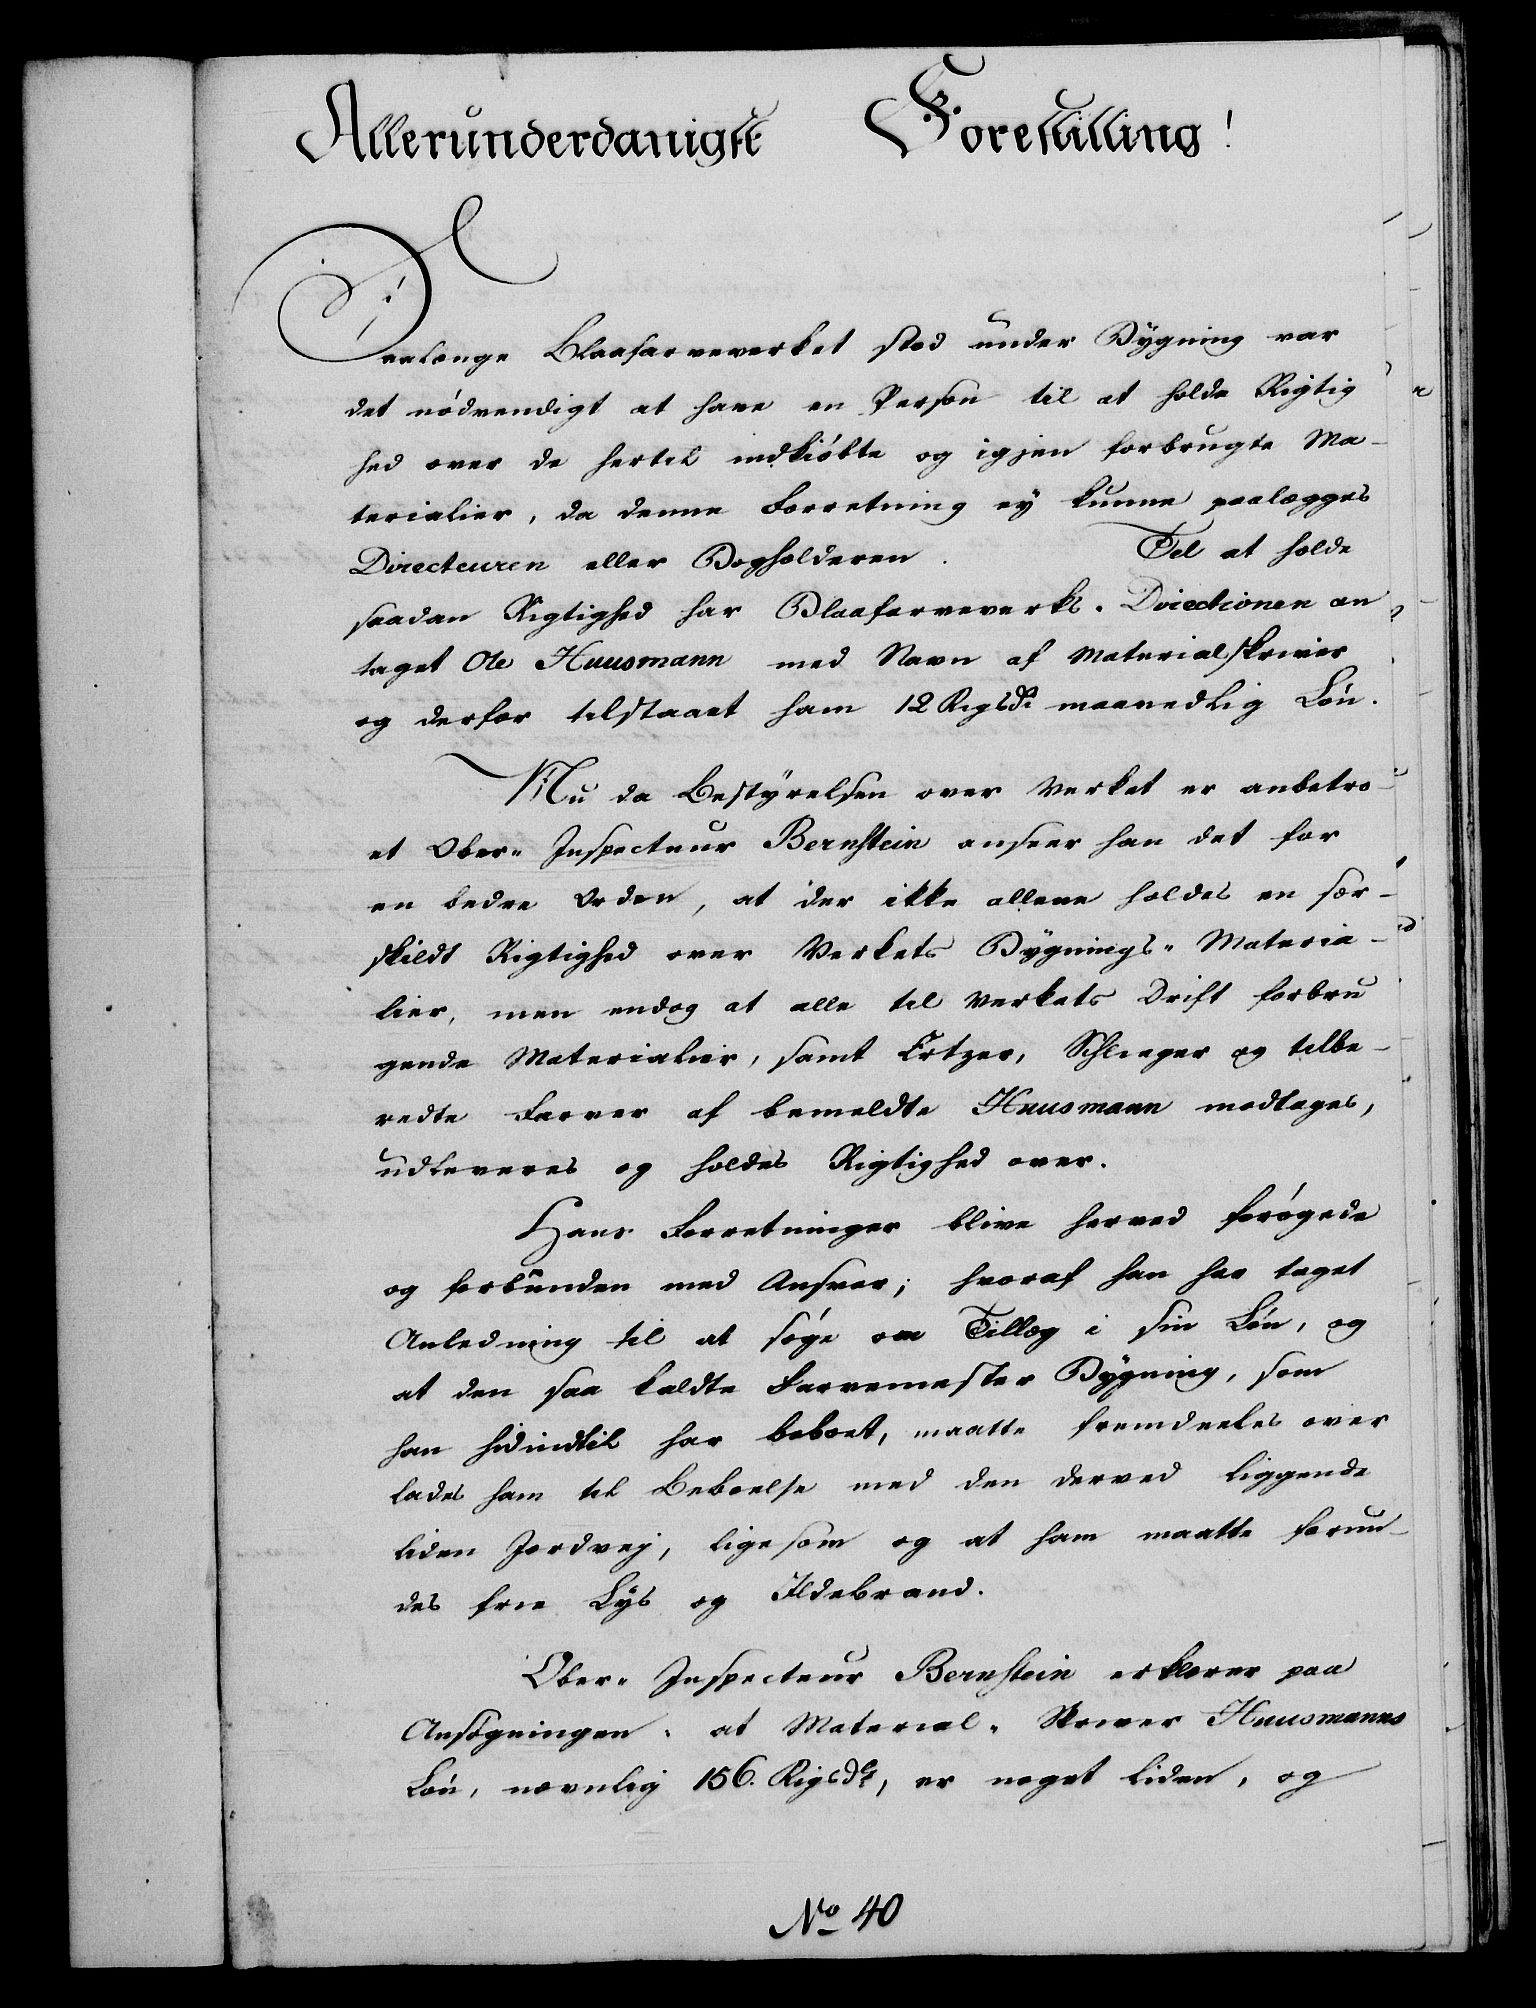 Allerunderdanigst Forestilling!
Saalænge Blaafarveverket stod under Bygning var
det nödvendigt at have en Person til at holde Rigtig
hed over de hertil indkiöbte og igjen forbrugte Ma-
terialier, da denne Forretning ey kunne paalægges
Directeuren eller Bogholderen. Til at holde
saadan Rigtighed har Blaafarveverks. Directionen an
taget Ole Huusmann med Navn af Materialskriver
og derfor tilstaaet ham 12 Rigsdr maanedlig Lön.
Nu da Bestyrelsen over Verket er anbetro-
et Ober= Inspecteur Bernstein anseer han det for
en bedre Orden, at der ikke allene holdes en sær-
skildt Rigtighed over Verkets Bygnings= Materia-
lier, men endog at alle til Verkets Drift forbru
gende Materialier, samt Ertzer, Schlieger og tilbe-
redte Farver af bemeldte Huusmann modtages,
udleveres og holdes Rigtighed over.
Hans Forretninger blive herved forögede
og forbunden med Ansvar; hvoraf han har taget
Anledning til at söge om Tillæg i sin Lön, og
at den saa kaldte Farvemester Bygning, som
han hidindtil har beboet, maatte fremdeeles over
lades ham til Beboelse med den derved liggende
liden Jordvej, ligesom og at ham maatte forun-
des frie Lys og Ildebrand.
Ober= Inspecteur Bernstein erklærer paa
Ansögningen: at Material= Skriver Huusmanns
Lön, nævnlig 156. Rigsdr, er noget liden, og
No 40